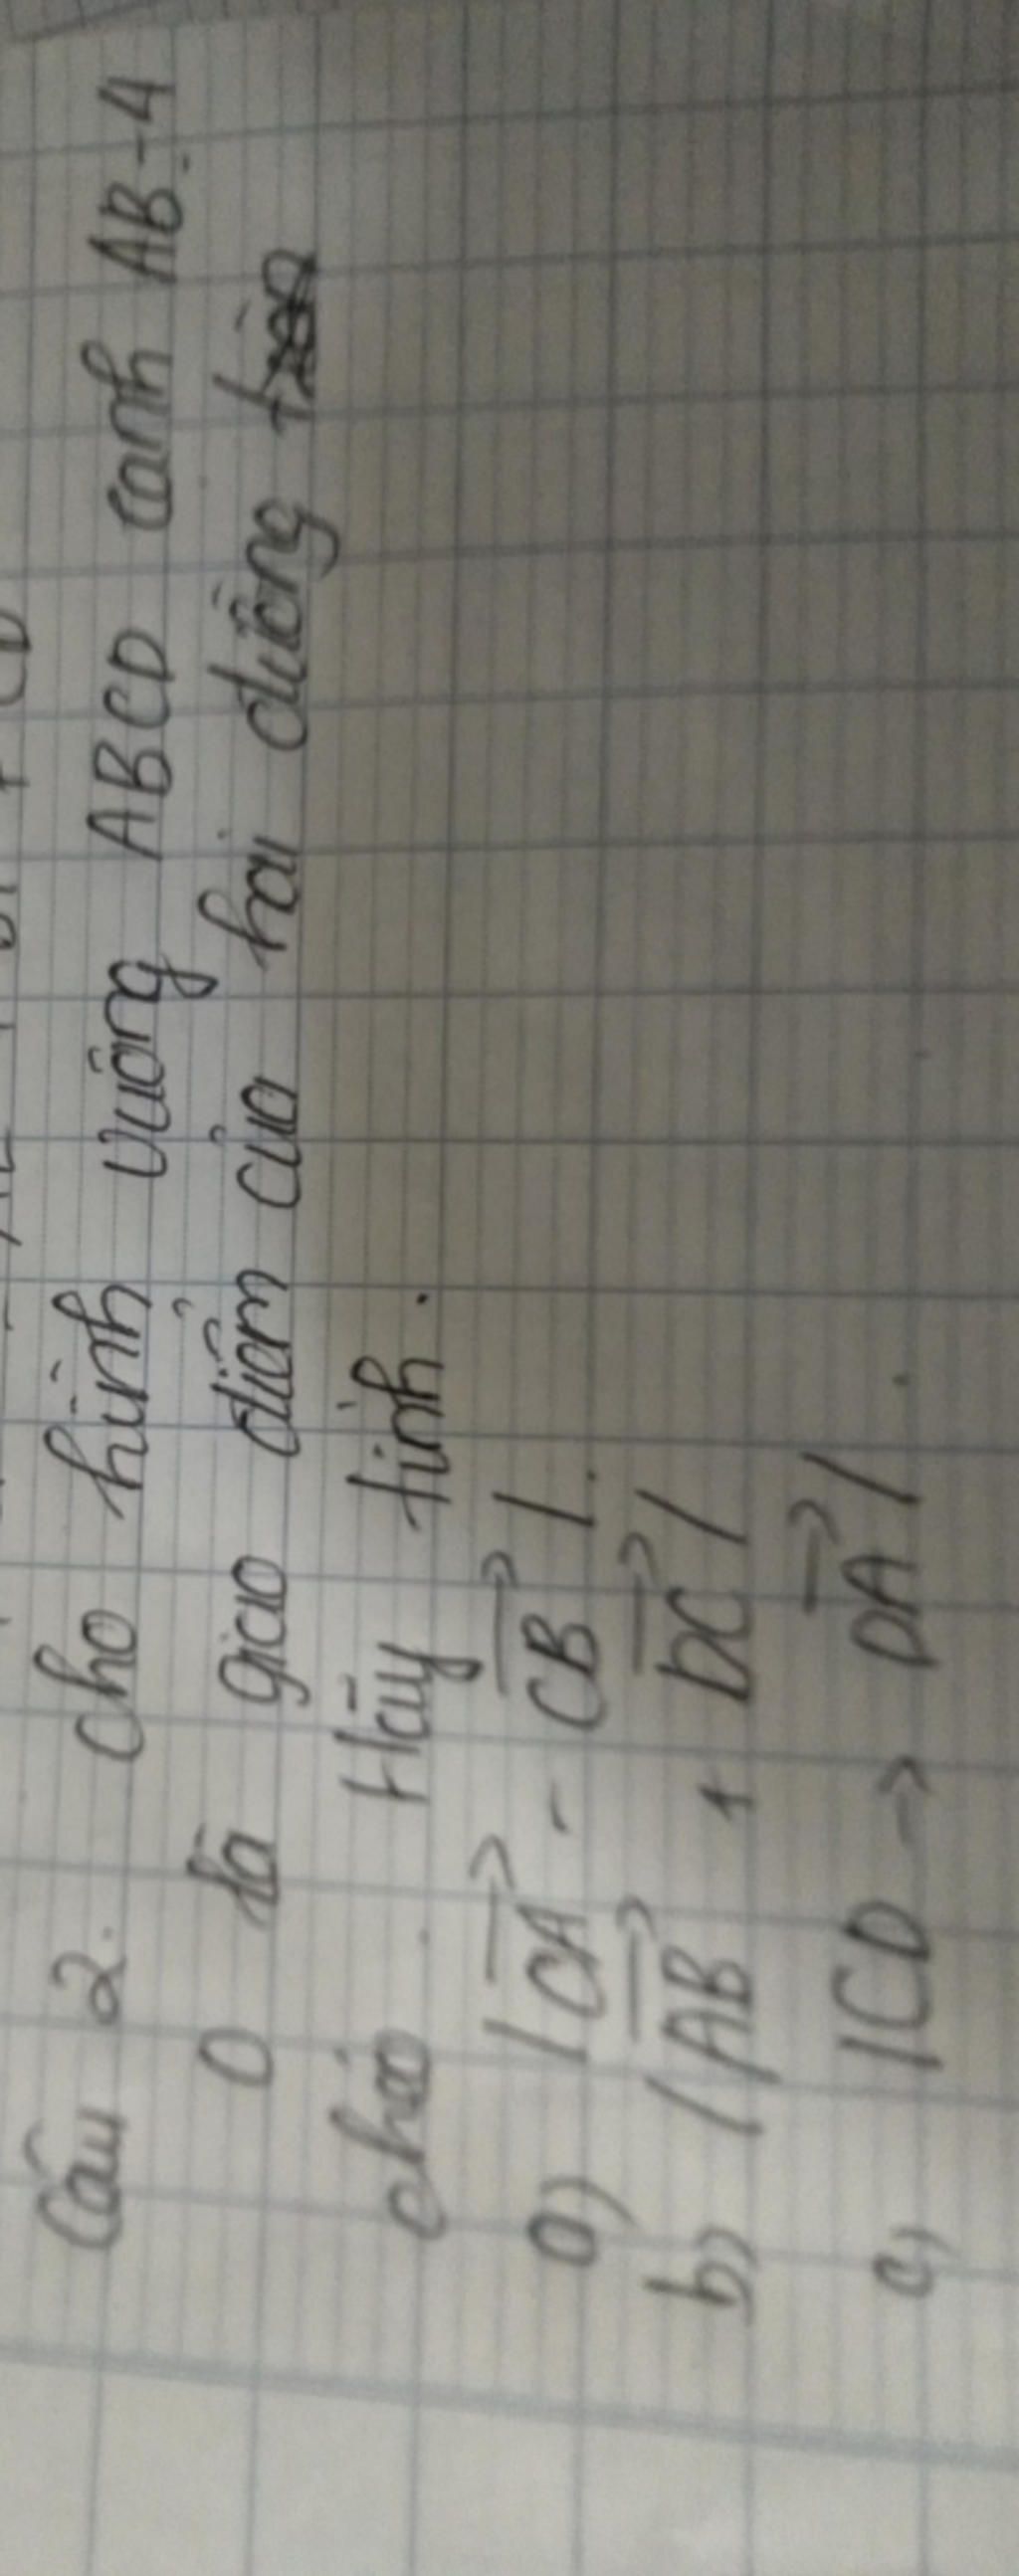 Câu 2. Cho hình vuông ABCD cạnh AB = 4
O là giao điểm của hai đường
chéo. Hãy tính.
a) |CA→ - CB→|.
b) |AB→ + DC→|
c) |CD → DA→|